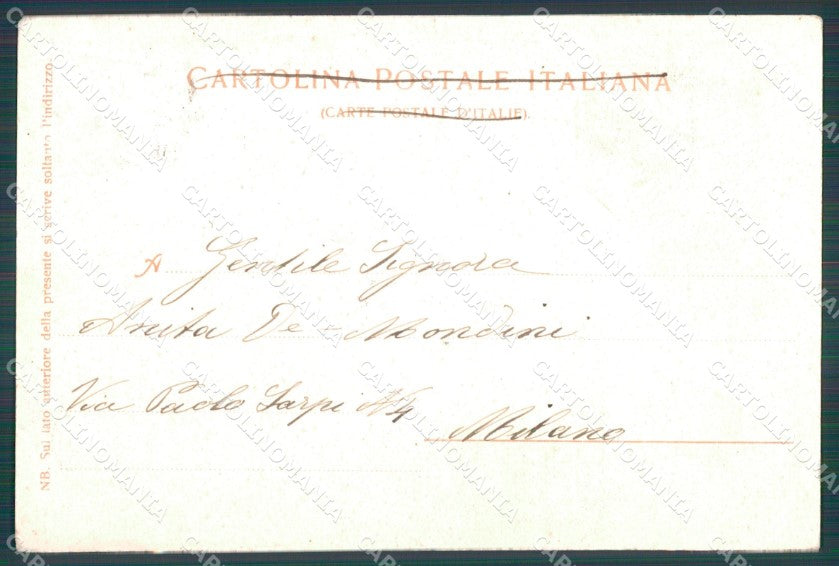 CARTOLINA POSTALE ITALIANA
(CARTE POSTALE D'ITALIE).
NB. Sul lato anteriore della presente si scrive soltanto l'indirizzo.
A Gentile Signora
Anita De Mondini
Via Paolo Sarpi N 4
Milano
CARTOLINOMANIA